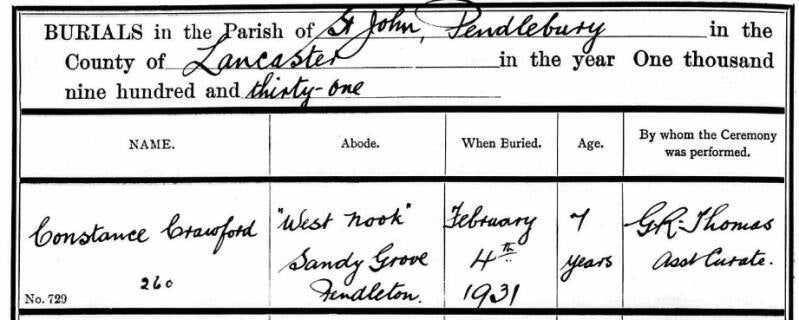 BURIALS in the Parish of St John, Pendlebury in the
County of Lancaster in the year One thousand
nine hundred and thirty-one
NAME.
Abode.
When Buried.
Age.
By whom the Ceremony
was performed.
Constance Crawford
260
No. 729
"West Nook"
Sandy Grove
Pendleton.
February
4th
1931
7
years
G.R. Thomas
Asst Curate.